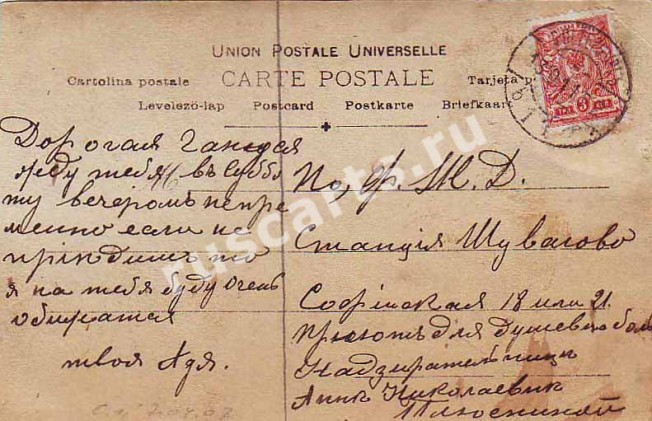 UNION POSTALE UNIVERSELLE
CARTE POSTALE
Cartolina postale
Tarjeta p
Levelező-lap Postcard Postkarte Briefkaart
Дорогая
жду тебя въ суббо
ту вечеромъ непре
менно если не
прiѣдишъ то
я на тебя буду очень
обижатся
твоя Адя.
По Ф. Ж. Д.
Станцiя Шувалово
Софiйская 18 или 21
Прiютъ для душевно боль
Надзирательницѣ
Аннѣ Николаевнѣ
3
ruscarts.ru